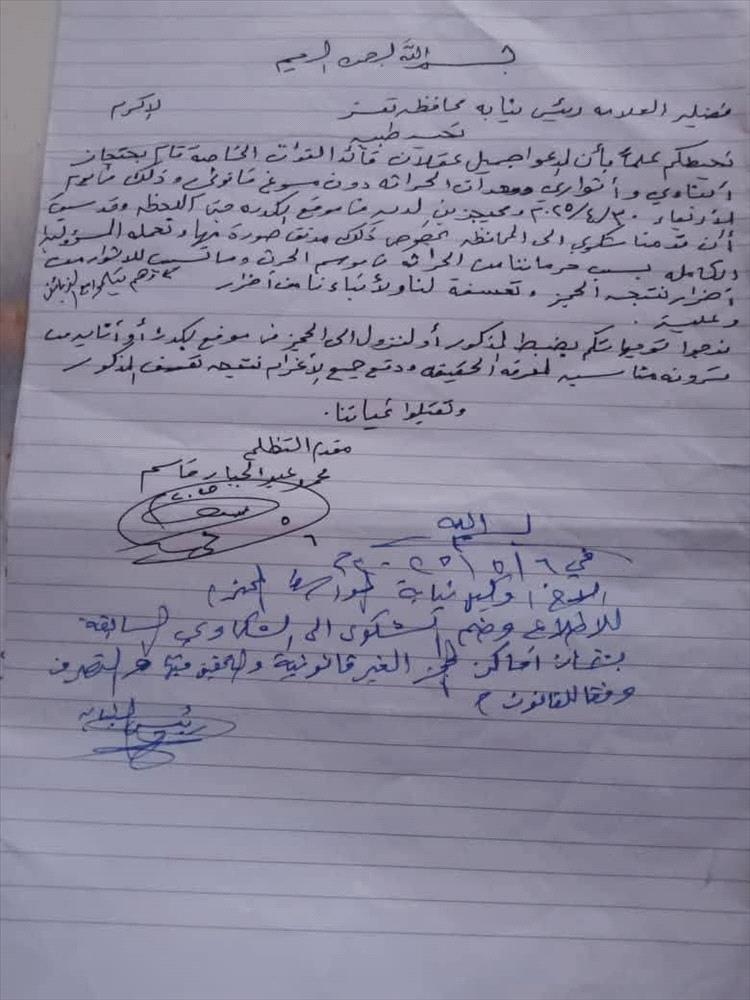 بسم الله الرحمن الرحيم
فضيلة العلامه رئيس نيابه محافظه تعز الاكرم
تحيه طيبه
نحيطكم علماً بأن المدعو جميل عقلان قائد القوات الخاصة قام بحتجاز
أثواري ومعدات الحراثه دون مسوغ قانوني وذلك في يوم
الأربعاء ٢٠٢٥/٤/٣٠ ومحتجزين لديه في موقع الكدره حتى اللحظه وقد سبق
أن قدمنا شكوى الى المحافظه بخصوص ذلك مرفق صورة منها ونحمله المسؤوليه
الكامله بسبب حرماننا من الحراثه في موسم الحرث وما تسبب للاثوار من
أضرار نتيجه الحجز وتعسفة لنا ولأبناءنا من أضرار
وعليه
نرجوا توجيهاتكم بضبط المذكور أو النزول الى الحجز في موقع الكدره أو
ترونه مناسب لمعرفه الحقيقه ودفع جميع الأغرام نتيجه تعسف المذكور
وتقبلوا تحياتنا.
مقدم التظلم
محمد عبدالجبار قاسم
في ٦/٥/٢٠٢٥م
الاخ/ وكيل نيابة المحترم
للاطلاع وضم الشكوى الى الشكاوي السابقة
بشأن اماكن الحجز الغير قانونية والتحقيق فيها والتصرف
وفقا للقانون
رئيس النيابه